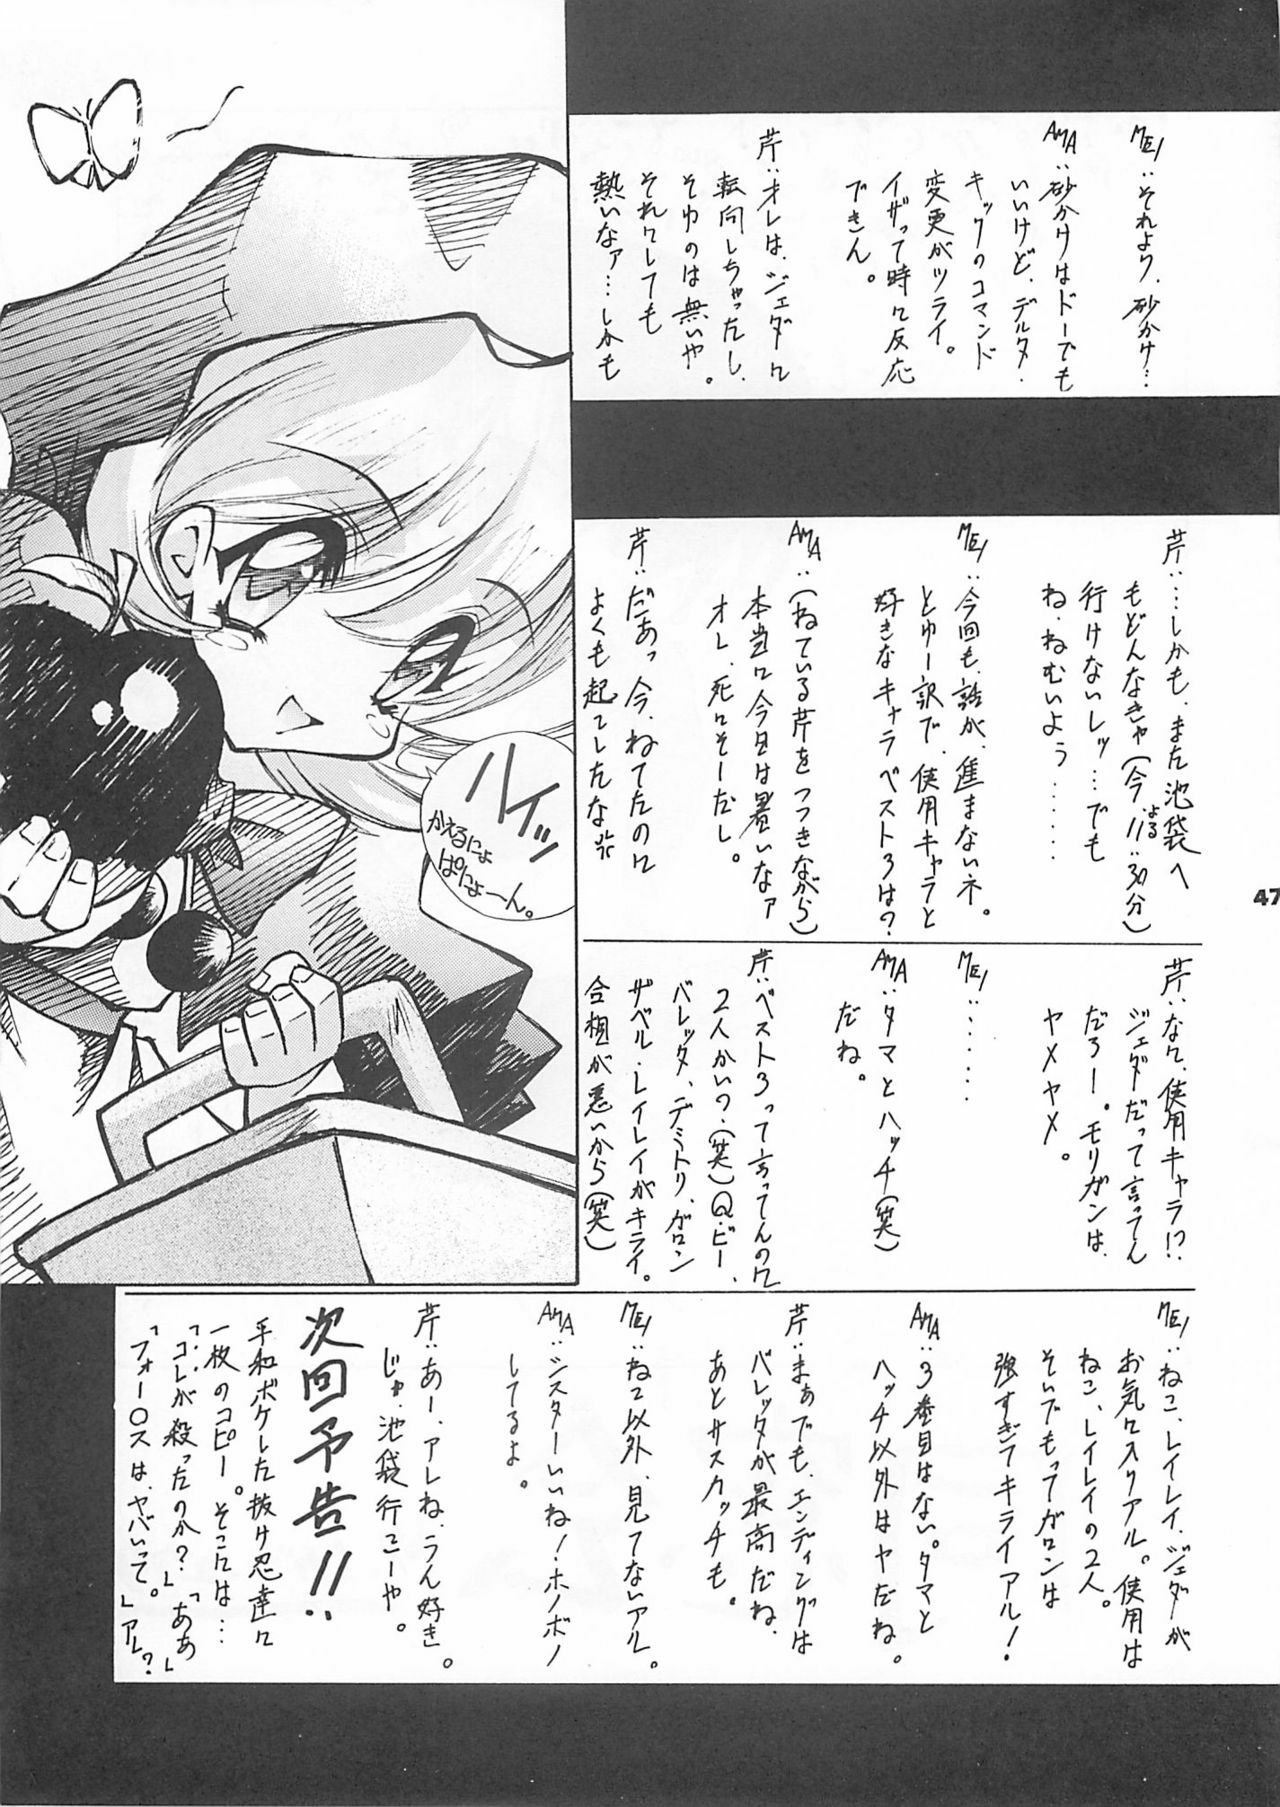 MEI：それより、砂かけ…
AMA：砂かけはドーでも
いいけど、デルタ・
キックのコマンド
変更がツライ。
イザって時に反応
できん。
芹：オレは、ジェダに
転向しちゃったし、
そゆのは無いや。
それにしても
熱いなァ…しかも
芹：…しかも、また池袋へ
もどんなきゃ(今11：30分)
よる
行けないしッ…でも
ね、ねむいよう……
MEI：今回も、話が、進まないネ。
とゆー訳で、使用キャラと
好きなキャラベスト3は？
AMA：(ねている芹をつつきながら)
本当に今日は暑いなァ
オレ、死にそーだし。
芹：だぁっ今、ねてたのに
よくも起こしたな
芹：なに、使用キャラ!?
ジェダだって言ってん
だろー。モリガンは、
ヤメヤメ。
MEI：……
AMA：タマとハッチ(笑)
だね。
芹：ベスト3って言ってんのに
2人かい？(笑)Q・ビー、
バレッタ、デミトリ、ガロン
ザベル・レイレイがキライ。
合相が悪いから(笑)
MEI：ねこ、レイレイ、ジェダが
お気に入りアル。使用は
ねこ、レイレイの2人。
そいでもってガロンは
強すぎてキライアル！
AMA：3番目はない。タマと
ハッチ以外はヤだね。
芹：まぁでも、エンディングは
バレッタが最高だね、
あとサスカッチも。
MEI：ねこ以外、見てないアル。
AMA：シスターいいね！ホノボノ
してるよ。
芹：あー、アレね、うん好き」
じゃ、池袋行こーや。
次回予告!!
平和ボケした抜け忍達に
一枚のコピー。そこには…
「コレが殺ったのか？」「ああ」
「フォー〇スは、ヤバいって。」アレ？
ハイッ
かえるにょ
ぱにょ〜ん。
47